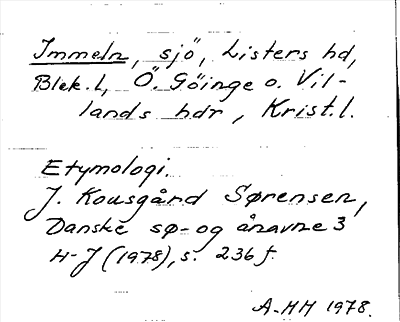 Immeln, sjö, Listers hd,
Blek. l, Ö. Göinge o. Vil-
lands hdr, Krist. l.
Etymologi.
J. Kousgård Sørensen,
Danske sø- og ånavne 3
H-J (1978), s. 236 f.
A-HH 1978.